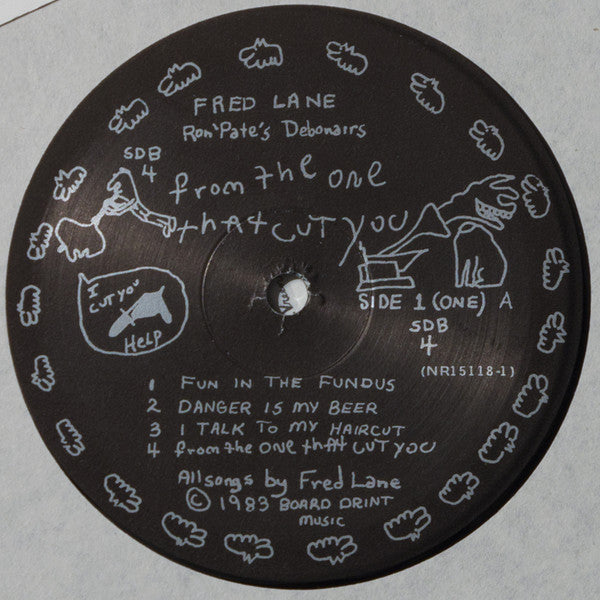 FRED LANE
Ron 'Pate's Debonairs
SDB
4
from the one
that CUT YOU
I
CUT YOU
HELP
SIDE 1 (ONE) A
SDB
4
(NR15118-1)
1 FUN IN THE FUNDUS
2 DANGER IS MY BEER
3 I TALK TO MY HAIRCUT
4 from the ONE that CUT YOU
All songs by Fred Lane
© 1983 BOARD DRINT
MUSIC